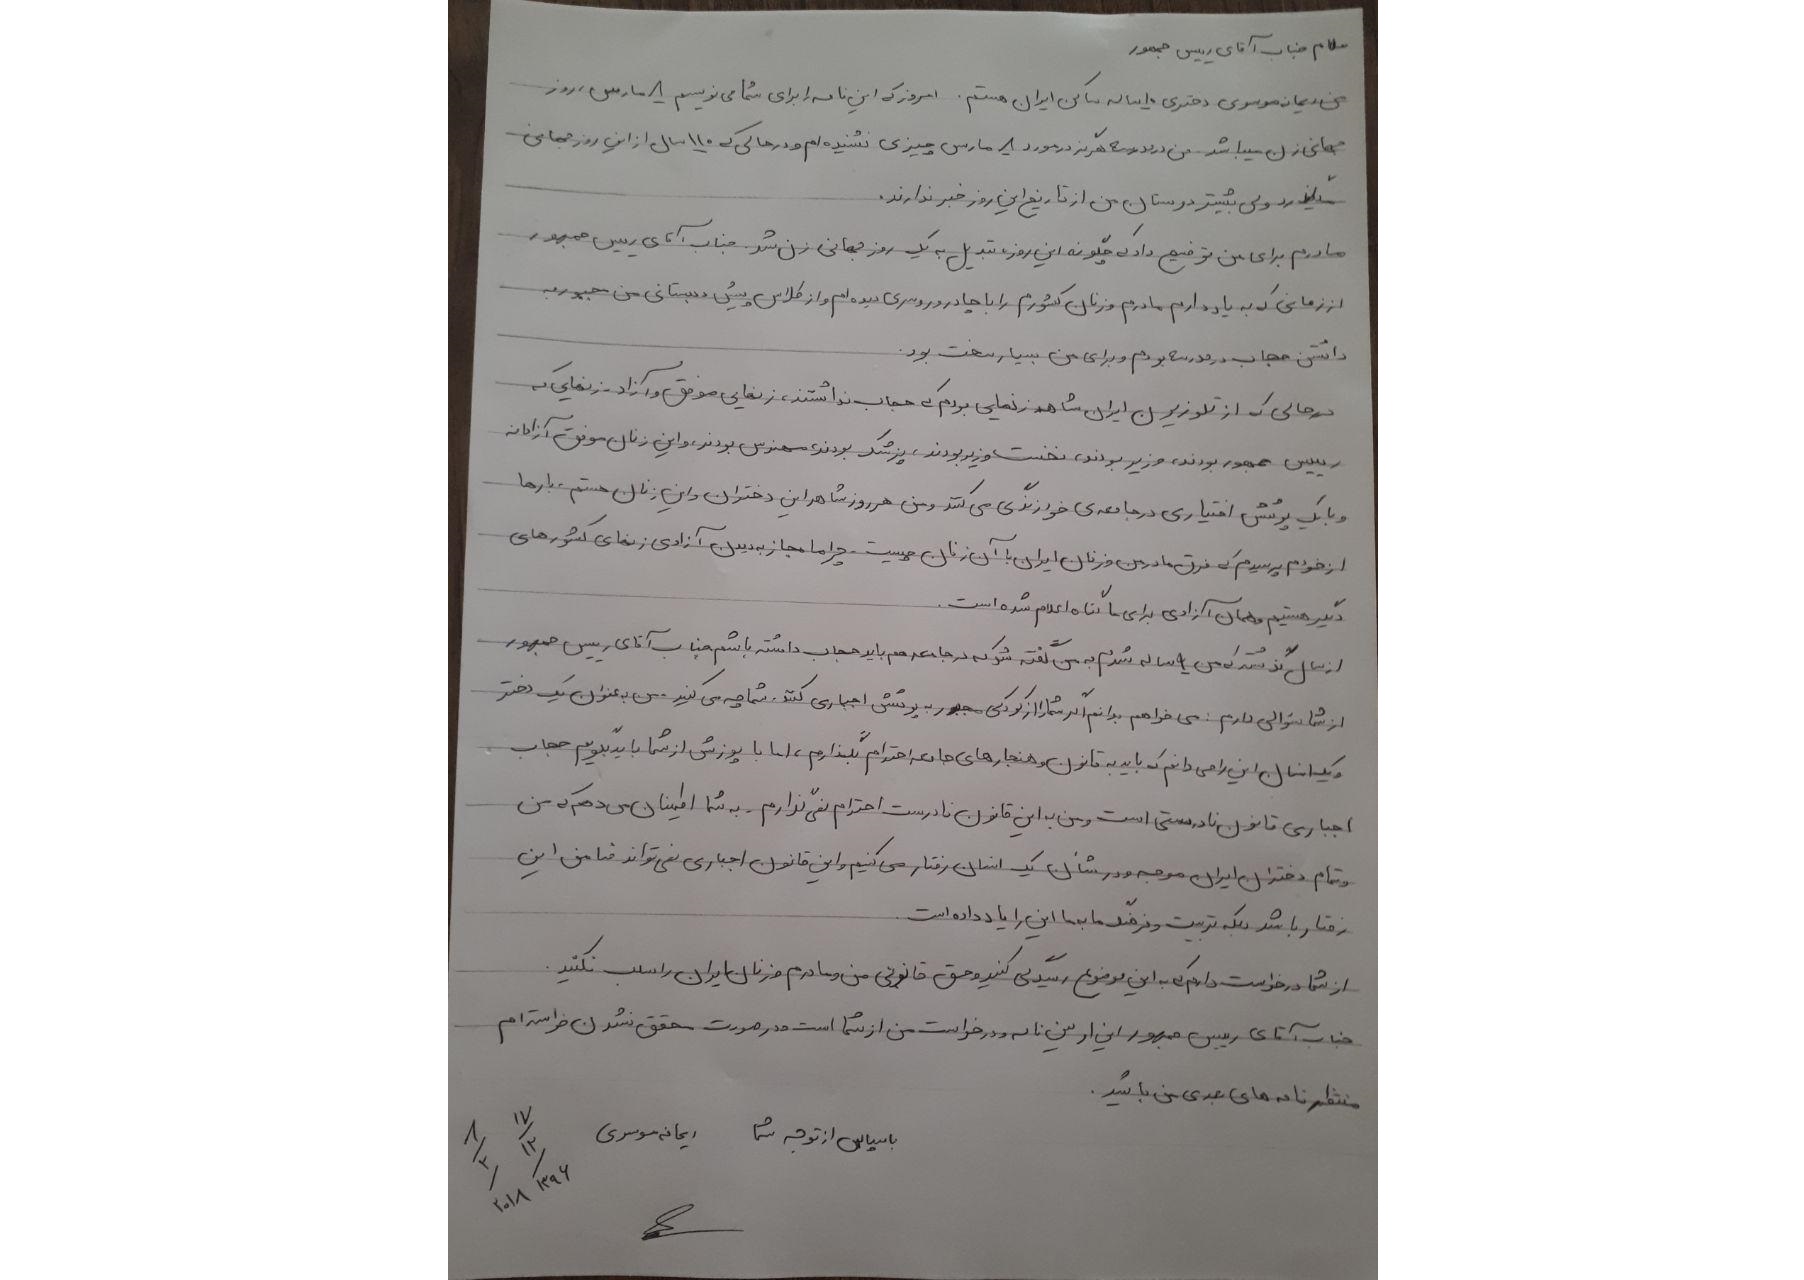 سلام جناب آقای رییس جمهور
من ریحانه موسوی دختری ۱۰ ساله ساکن ایران هستم. امروز که این نامه را برای شما می نویسم ۸ مارس، روز
جهانی زن میباشد. من در مدرسه هرگز در مورد ۸ مارس چیزی نشنیده ام و در حالی که ۱۱۰ سال از این روز جهانی
میگذرد ولی بیشتر دوستان من از تاریخ این روز خبر ندارند.
مادرم برای من توضیح داد که چگونه این روز، تبدیل به یک روز جهانی زن شد. جناب آقای رییس جمهور
از زمانی که به یاد دارم مادرم و زنان کشورم را با چادر و روسری دیده ام و از کلاس پیش دبستانی من مجبور به
داشتن حجاب در مدرسه بودم و برای من بسیار سخت بود.
در حالی که از تلوزیون ایران شاهد زنهایی بودم که حجاب نداشتند، زنهایی موفق و آزاد. زنهایی که
رییس جمهور بودند، وزیر بودند، نخست وزیر بودند، پزشک بودند، مهندس بودند، و این زنان موفق آزادانه
و با یک پوشش اختیاری در جامعه ی خود زندگی می کنند و من هر روز شاهد این دختران و این زنان هستم، بارها
از خودم پرسیدم که فرق مادر من و زنان ایران با آن زنان چیست. چرا ما مجاز به دیدن آزادی زنهای کشورهای
دیگر هستیم و همان آزادی برای ما گناه اعلام شده است.
از سال گذشته که من ۹ ساله شدم به من گفته شد که در جامعه هم باید حجاب داشته باشم جناب آقای رییس جمهور
از شما سوالی دارم: می خواهم بدانم اگر شما را از کودکی مجبور به پوشش اجباری کنند، شما چه می کنید. من به عنوان یک دختر
و یک انسان این را می دانم که باید به قانون و هنجارهای جامعه احترام بگذارم، اما با پوزش از شما باید بگویم حجاب
اجباری قانون نادرستی است و من به این قانون نادرست احترام نمی گذارم. به شما اطمینان می دهم که من
و تمام دختران ایران موجه و در شأن یک انسان رفتار می کنیم و این قانون اجباری نمی تواند ضامن این
رفتار باشد بلکه تربیت و فرهنگ ما به ما این را یاد داده است.
از شما درخواست دارم که به این موضوع رسیدگی کنید و حق قانونی من و مادرم و زنان ایران را سلب نکنید.
جناب آقای رییس جمهور این اولین نامه و درخواست من از شما است و در صورت محقق نشدن خواسته ام
منتظر نامه های بعدی من باشید.
با سپاس از توجه شما ریحانه موسوی
۱۷/۱۲/۱۳۹۶
۸/۳/۲۰۱۸